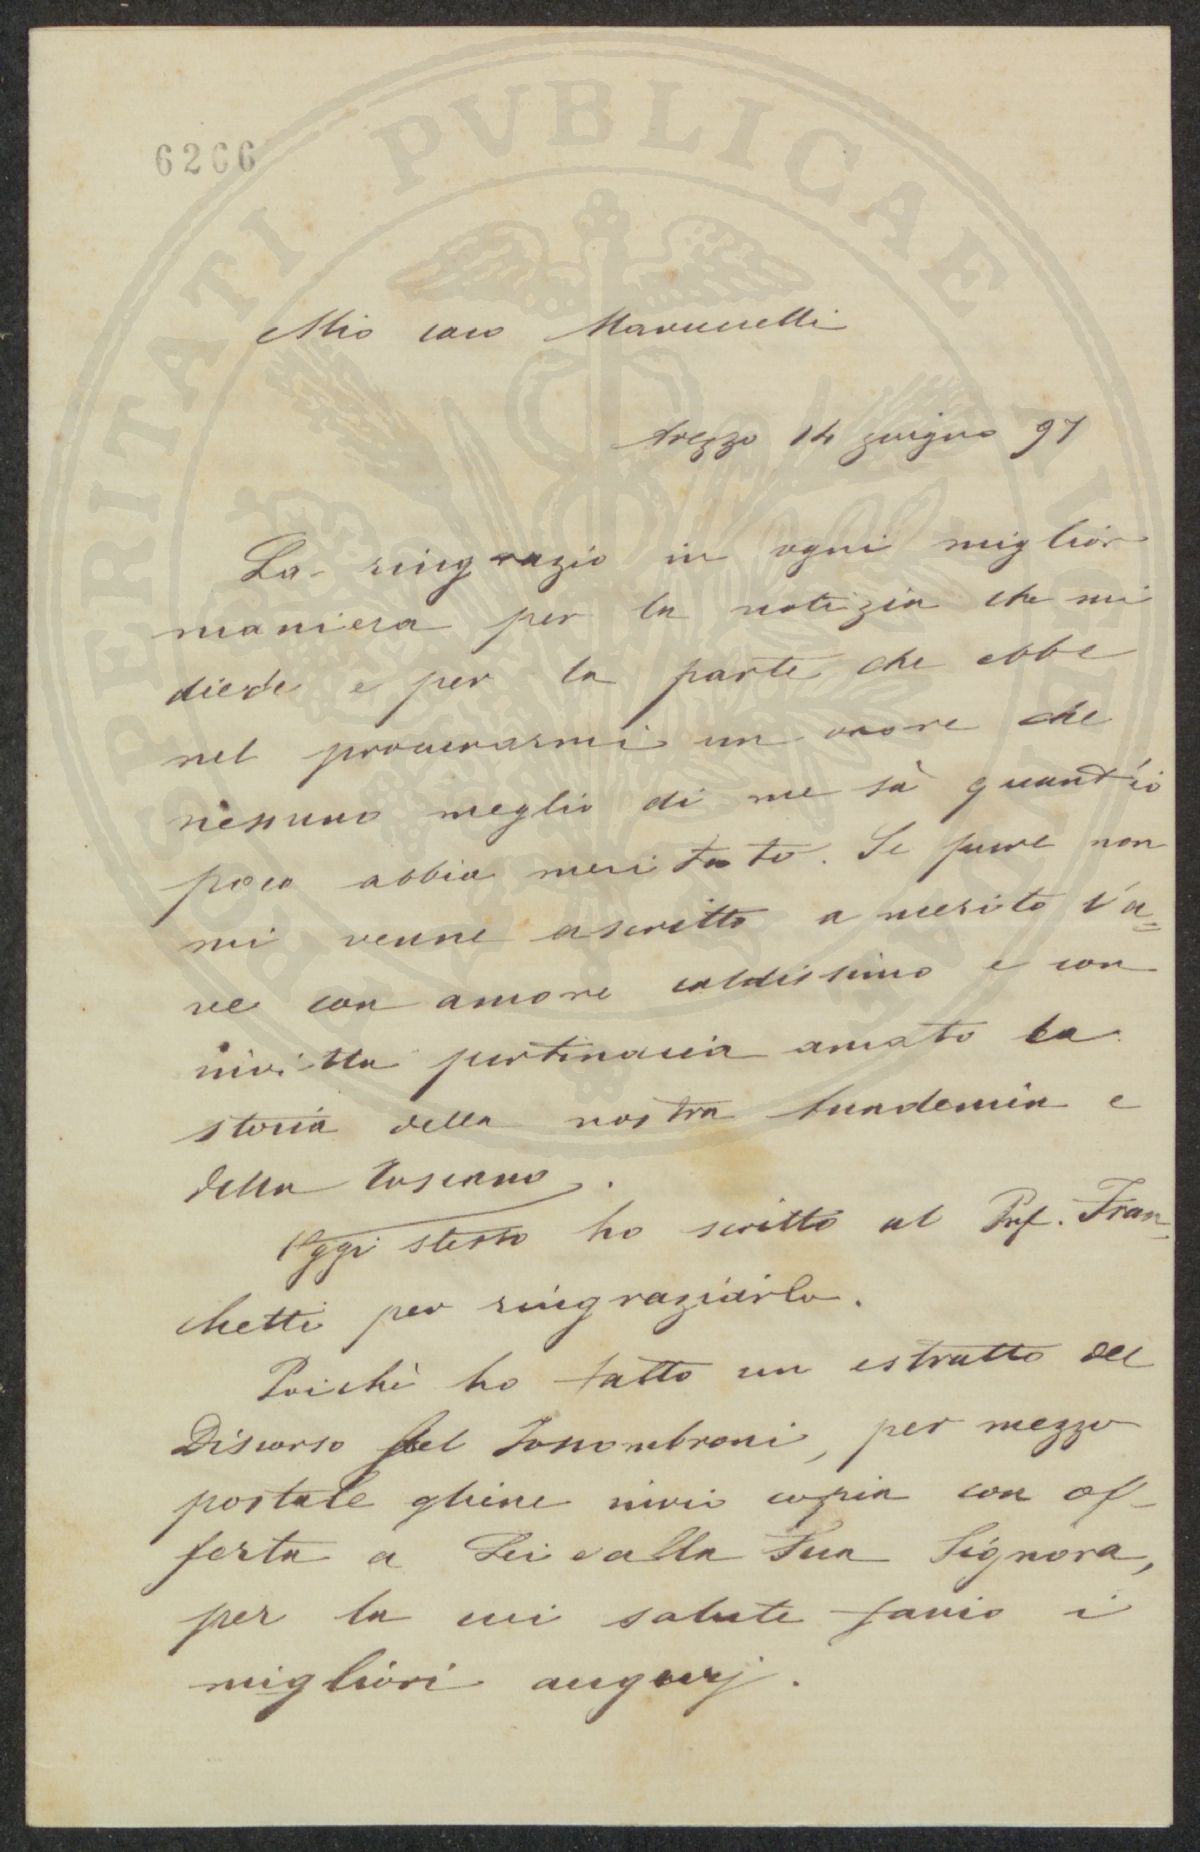 6266
PROSPERITATI PVBLICAE
Mio caro Marucelli
Arezzo 14 giugno 97
La ringrazio in ogni miglior
maniera per la notizia che mi
diede e per la parte che ebbe
nel procurarmi un onore che
nessuno meglio di me sà quant'io
poco abbia meritato. Se pure non
mi venne ascritto a merito l'a=
ve con amore caldissimo e con
invitta pertinacia amato la
storia della nostra Accademia e
della Toscana.
Oggi stesso ho scritto al Prof. Fran_
chetti per ringraziarlo.
Poichè ho fatto un estratto del
Discorso sul Fossombroni, per mezzo
postale gliene invio copia con of_
ferta a Lei e alla Sua Signora,
per la cui salute faccio i
migliori augurj.